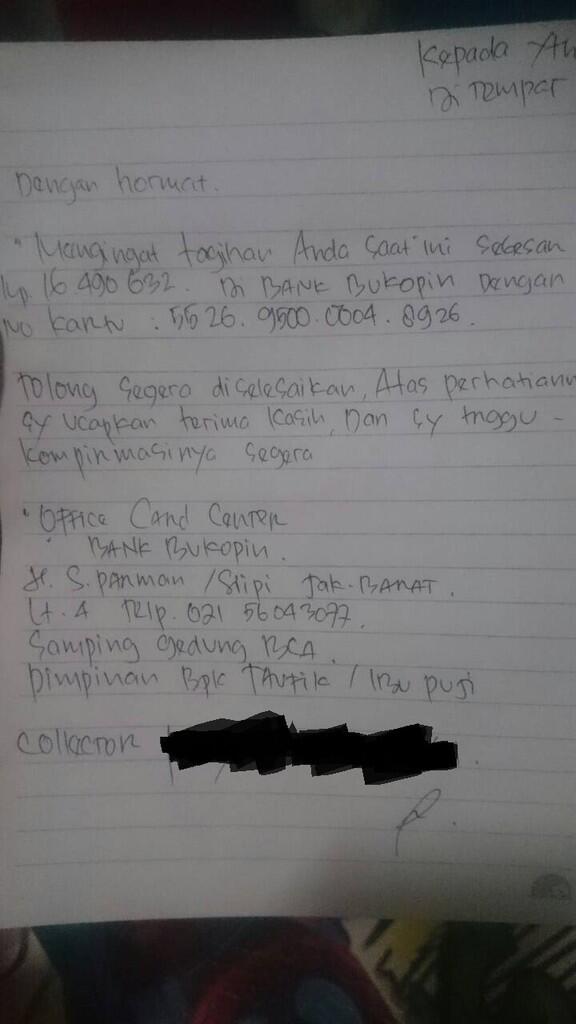 Kepada
Di Tempat
Dengan hormat.
" Mengingat tagihan Anda saat ini sebesar
Rp. 16.490.632. Di BANK BUKOPIN Dengan
No Kartu : 5526.9500.0004.8926.
Tolong segera diselesaikan, Atas perhatiannya
sy ucapkan terima kasih, Dan sy tnggu -
kompinmasinya segera
" OFFICE Card Center
BANK BUKOPIN.
Jl. S. PARMAN / Slipi Jak-BARAT.
Lt. 4 Telp. 021 56043077.
Samping gedung BCA.
Pimpinan Bpk TAufik / IBu puji
Collector